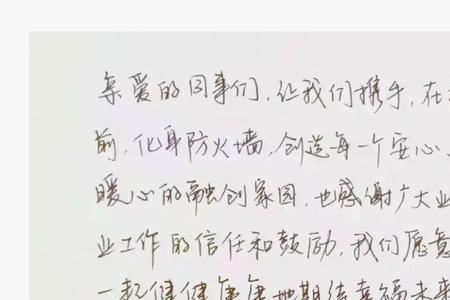 亲爱的同事们,让我们携手,在
前,化身防火墙,创造每一个安心、
暖心的融创家园,也感谢广大业
业工作的信任和鼓励,我们愿意
一起健健康康地期待幸福未来